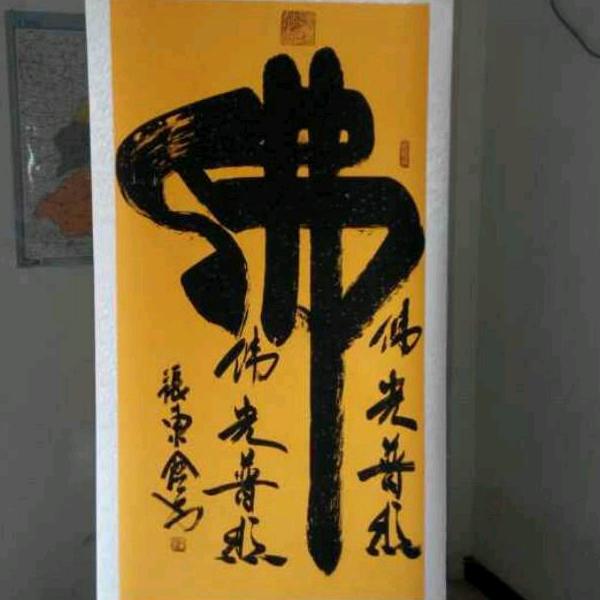 佛
佛光普照
佛光普照
張東會書